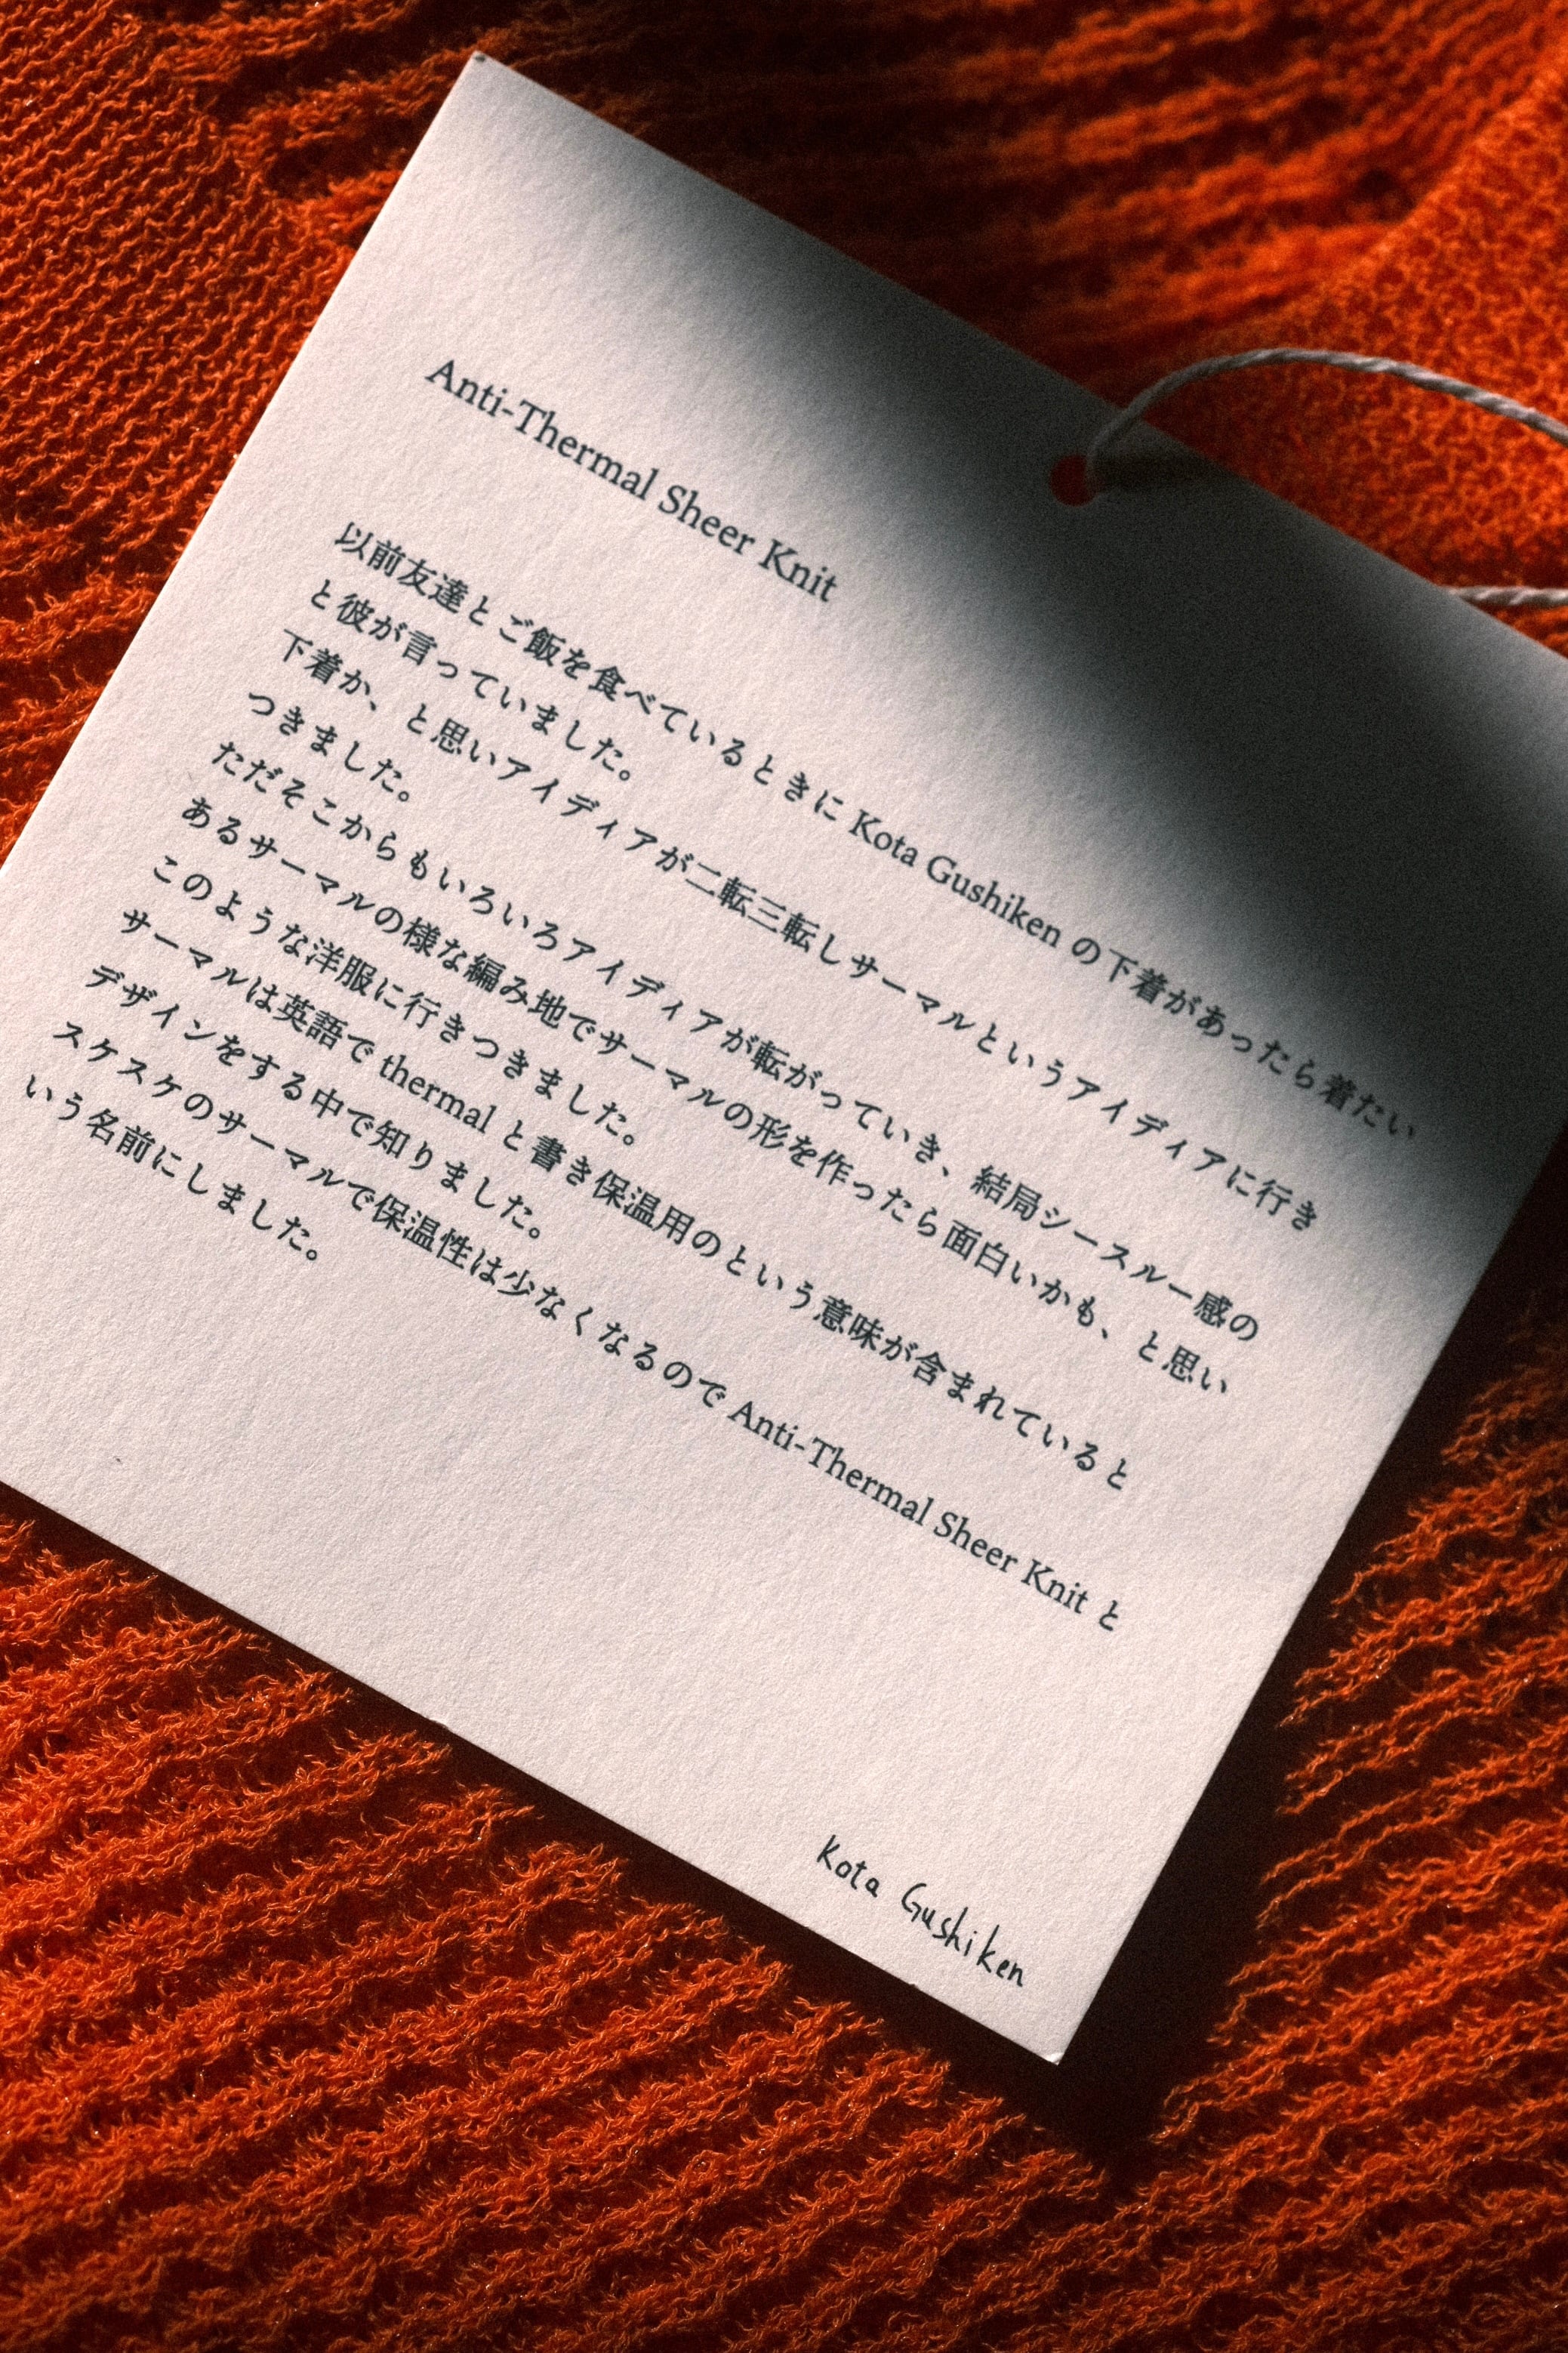 Anti-Thermal Sheer Knit
以前友達とご飯を食べているときに Kota Gushiken の下着があったら着たい
と彼が言っていました。
下着か、と思いアイディアが二転三転しサーマルというアイディアに行き
つきました。
ただそこからもいろいろアイディアが転がっていき、結局シースルー感の
あるサーマルの様な編み地でサーマルの形を作ったら面白いかも、と思い
このような洋服に行きつきました。
サーマルは英語で thermal と書き保温用のという意味が含まれていると
デザインをする中で知りました。
スケスケのサーマルで保温性は少なくなるので Anti-Thermal Sheer Knit と
いう名前にしました。
Kota Gushiken